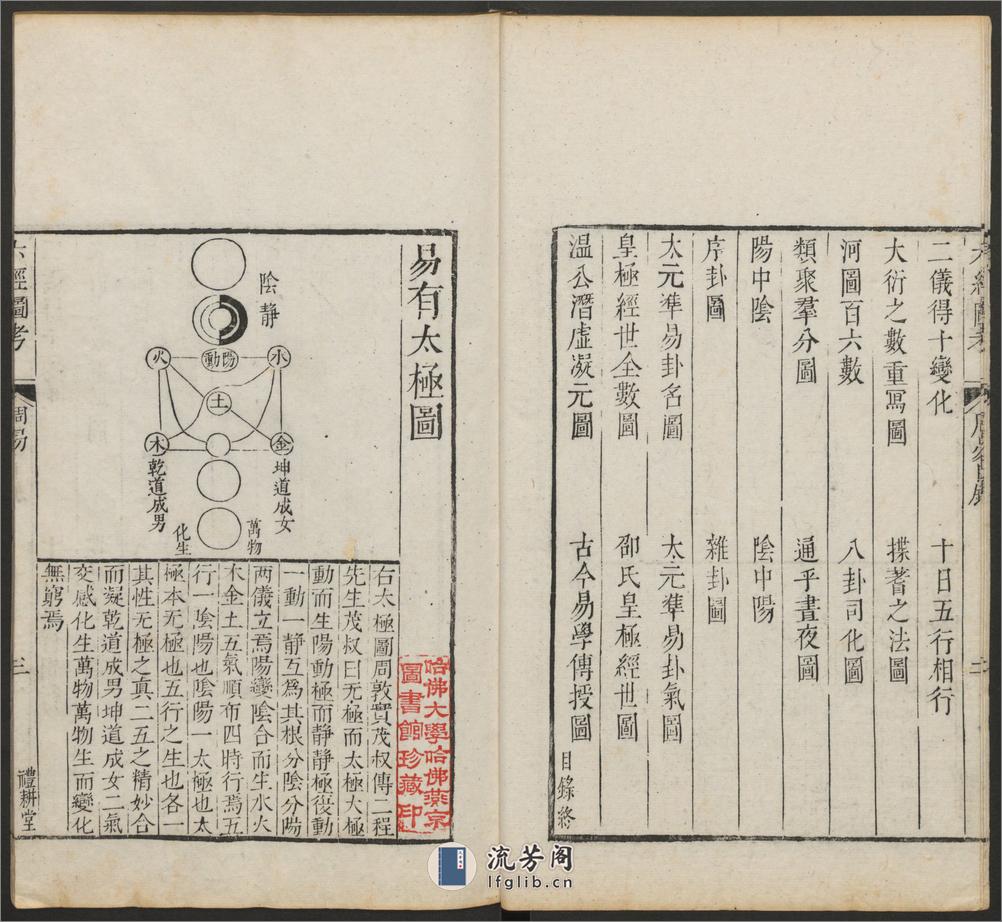 二儀得十變化
十日五行相行
大衍之數重寫圖
揲蓍之法圖
河圖百六數
八卦司化圖
類聚羣分圖
通乎晝夜圖
陽中陰
陰中陽
序卦圖
雜卦圖
太元準易卦名圖
太元準易卦氣圖
皇極經世全數圖
邵氏皇極經世圖
溫公潛虛凝元圖
古今易學傳授圖
目錄終
二
易有太極圖
陰靜
陽動
火
水
土
木
金
坤道成女
乾道成男
萬物
化生
右太極圖周敦實茂叔傳二程
先生茂叔曰无極而太極大極
動而生陽動極而靜靜極復動
一動一靜互爲其根分陰分陽
兩儀立焉陽變陰合而生水火
木金土五氣順布四時行焉五
行一陰陽也陰陽一太極也太
極本无極也五行之生也各一
其性无極之真二五之精妙合
而凝乾道成男坤道成女二氣
交感化生萬物萬物生而變化
無窮焉
哈佛大學哈佛燕京
圖書館珍藏印
六經圖考
周易
三
禮耕堂
流芳阁
lfglib.cn